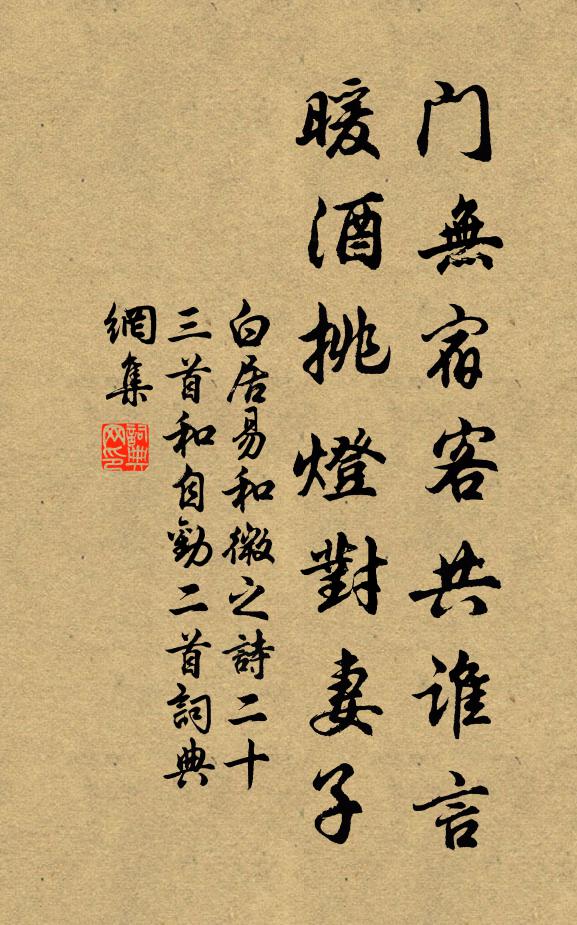 門無宿客共誰言
暖酒挑燈對妻子
白居易和微之詩二十
三首和自勸二首詞典
網集
詞典網印